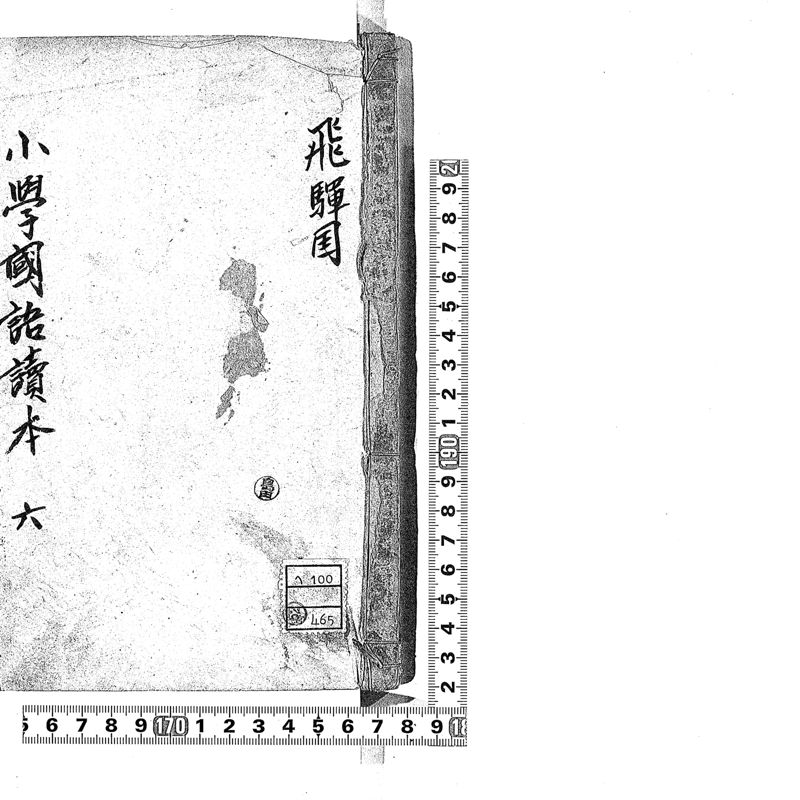 飛騨国
小學國語讀本 六
100
465
2 9 8 7 6 5 4 3 2 1 190 9 8 7 6 5 4 3 2
6 7 8 9 170 1 2 3 4 5 6 7 8 9 18